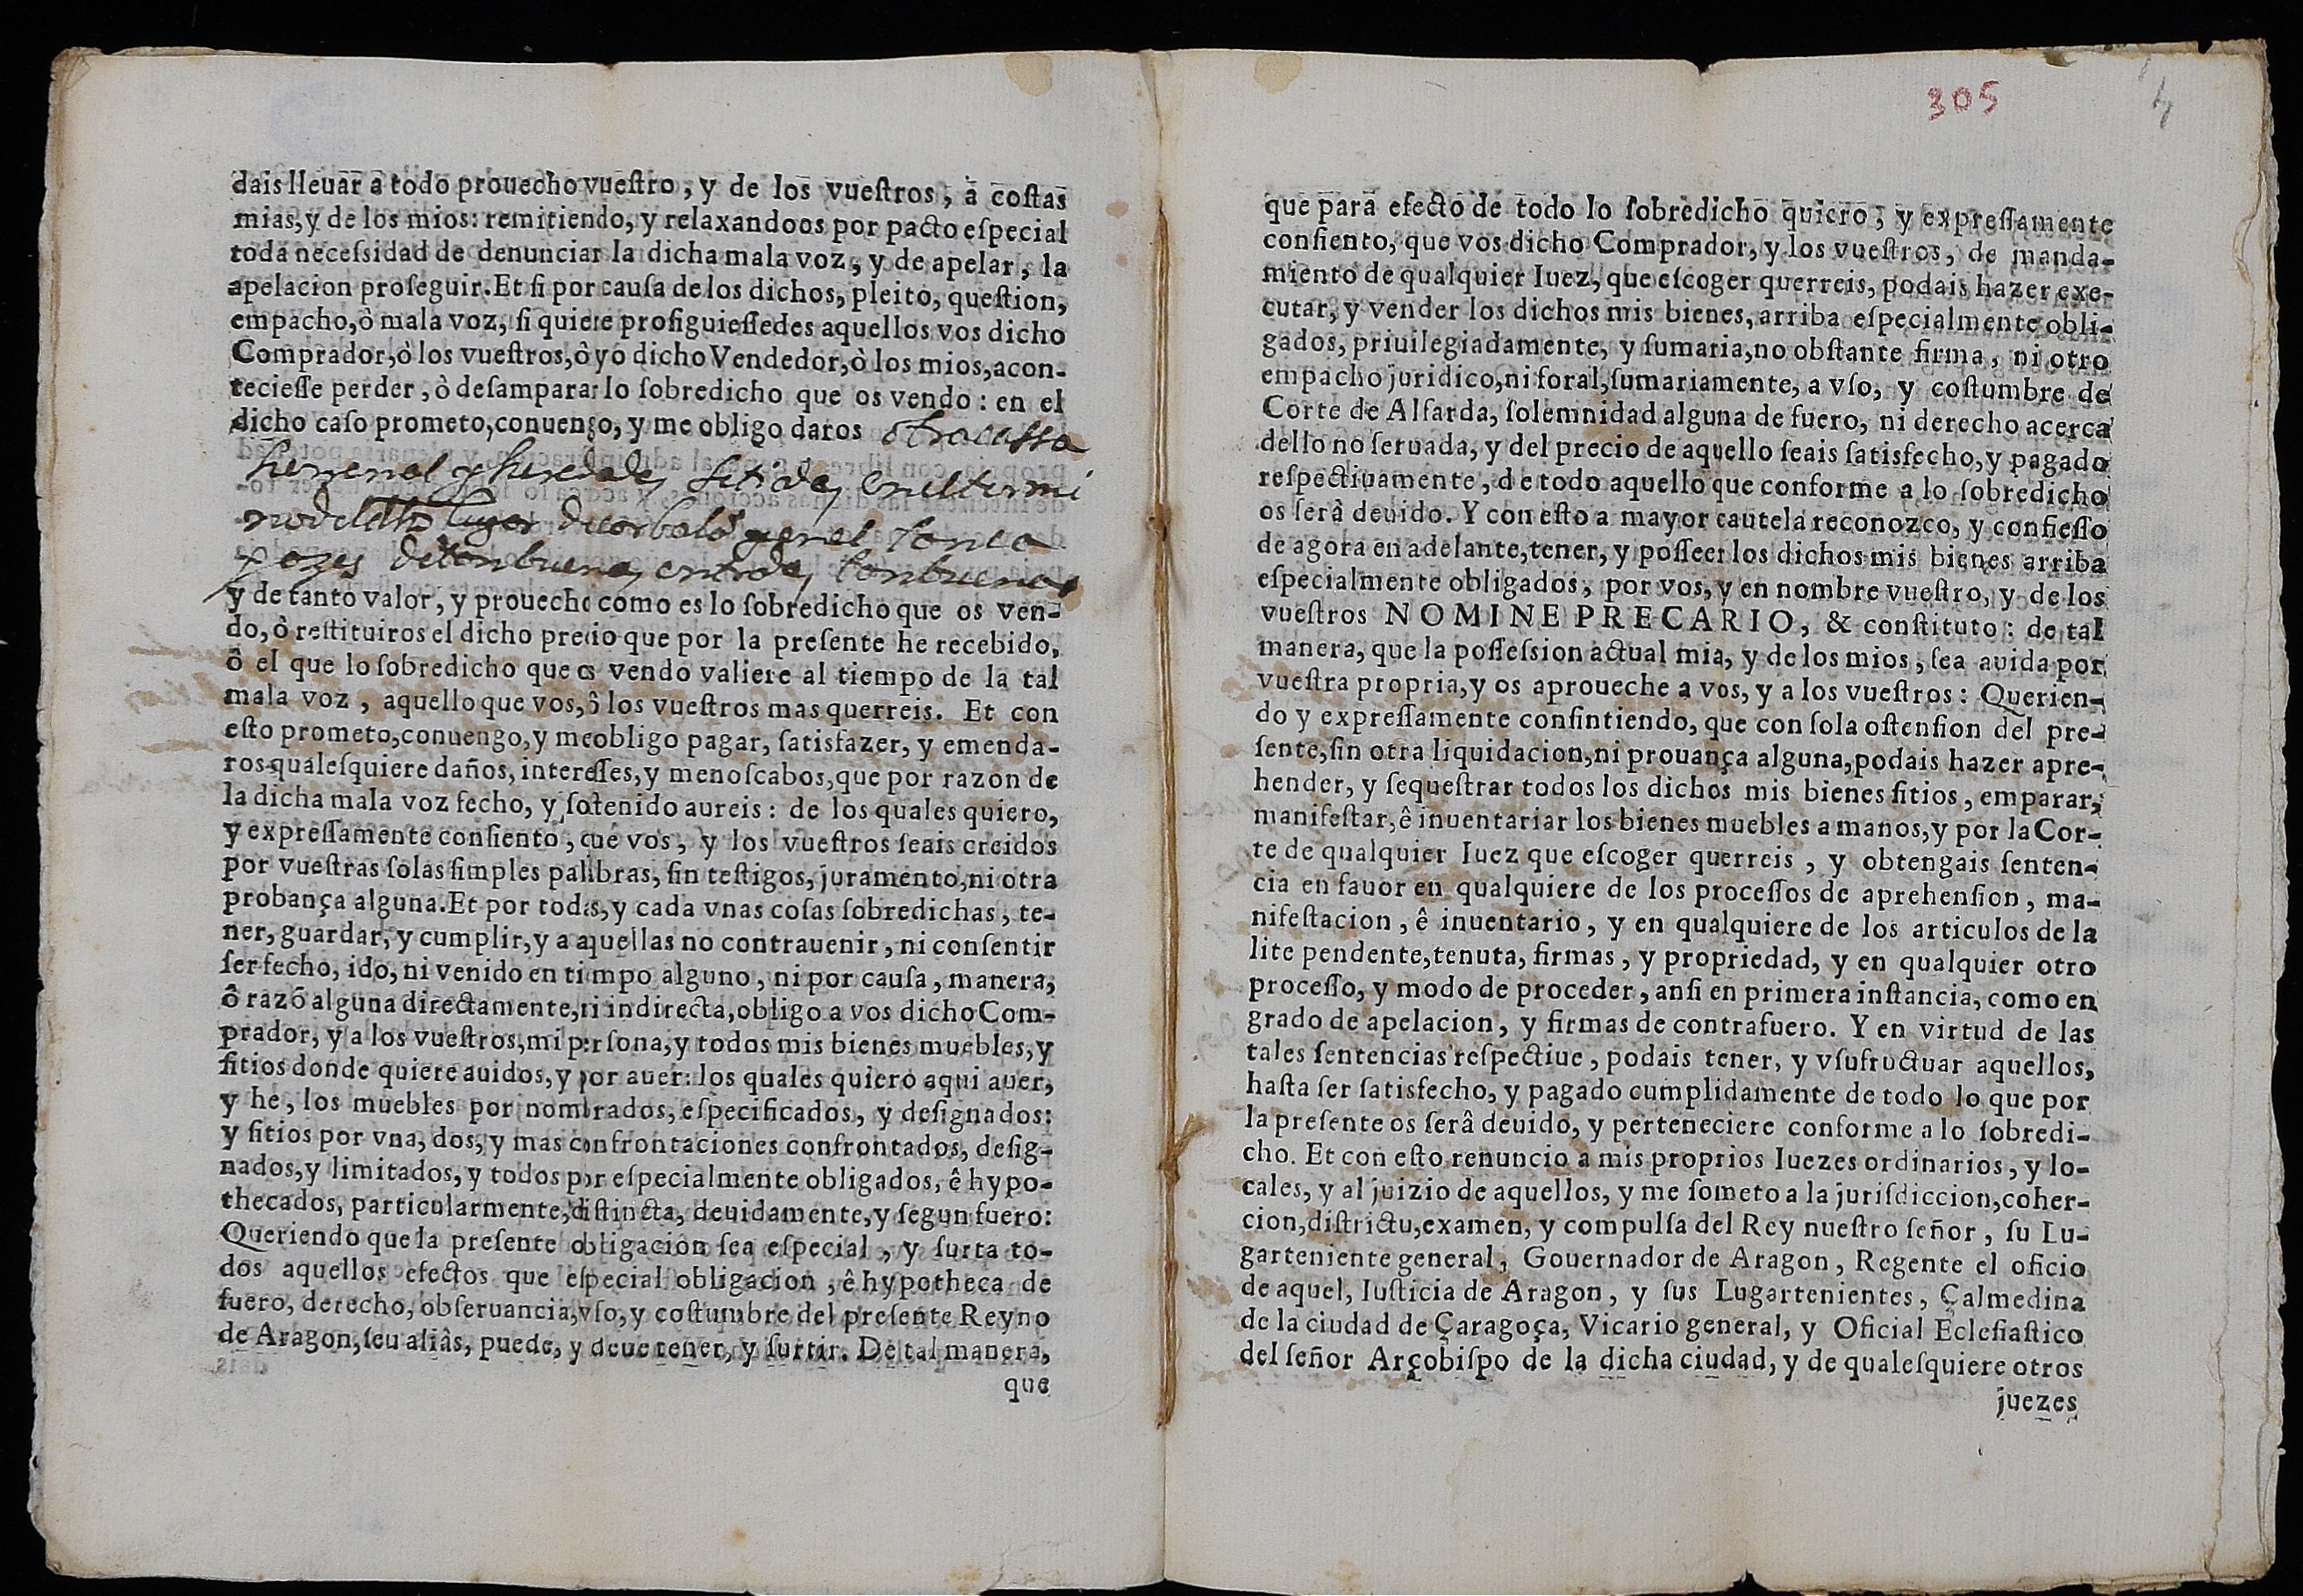 dais lleuar a todo prouecho vueſtro, y de los vueſtros, à coſtas
mias, y de los mios: remitiendo, y relaxandoos por pacto eſpecial
toda neceſsidad de denunciar la dicha mala voz, y de apelar, la
apelacion proſeguir. Et ſi por cauſa de los dichos, pleito, queſtion,
empacho, ò mala voz, ſi quiere proſiguieſſedes aquellos vos dicho
Comprador, ò los vueſtros, ô yo dicho Vendedor, ò los mios, acon-
tecieſſe perder, ò deſamparar lo ſobredicho que os vendo: en el
dicho caſo prometo, conuengo, y me obligo daros otra cassa
herrenal y heredades sitidas en el termi
no del dho lugar de corbalo y en el
de tan buenas entradas tan buenas
y de tanto valor, y prouecho como es lo ſobredicho que os ven-
do, ò reſtituiros el dicho precio que por la preſente he recebido,
ô el que lo ſobredicho que os vendo valiere al tiempo de la tal
mala voz, aquello que vos, ô los vueſtros mas querreis. Et con
eſto prometo, conuengo, y me obligo pagar, ſatisfazer, y emenda-
ros qualeſquiere daños, intereſſes, y menoſcabos, que por razon de
la dicha mala voz fecho, y ſoſtenido aureis: de los quales quiero,
y expreſſamente conſiento, que vos, y los vueſtros ſeais creidos
por vueſtras ſolas ſimples palabras, ſin teſtigos, juramento, ni otra
probança alguna. Et por todas, y cada vnas coſas ſobredichas, te-
ner, guardar, y cumplir, y a aquellas no contrauenir, ni conſentir
ſer fecho, ido, ni venido en tiempo alguno, ni por cauſa, manera,
ô razõ alguna directamente, ni indirecta, obligo a vos dicho Com-
prador, y a los vueſtros, mi perſona, y todos mis bienes muebles, y
ſitios donde quiere auidos, y por auer: los quales quiero aqui auer,
y he, los muebles por nombrados, eſpecificados, y deſignados:
y ſitios por vna, dos, y mas confrontaciones confrontados, deſig-
nados, y limitados, y todos por eſpecialmente obligados, ê hypo-
thecados, particularmente, diſtincta, deuidamente, y ſegun fuero:
Queriendo que la preſente obligacion ſea eſpecial, y ſurta to-
dos aquellos efectos que eſpecial obligacion, ê hypotheca de
fuero, derecho, obſeruancia, vſo, y coſtumbre del preſente Reyno
de Aragon, ſeu aliâs, puede, y deue tener, y ſurtir. De tal manera,
que
305
4
que para efecto de todo lo ſobredicho quiero, y expreſſamente
conſiento, que vos dicho Comprador, y los vueſtros, de manda-
miento de qualquier Iuez, que eſcoger querreis, podais hazer exe-
cutar, y vender los dichos mis bienes, arriba eſpecialmente obli-
gados, priuilegiadamente, y ſumaria, no obſtante firma, ni otro
empacho juridico, ni foral, ſumariamente, a vſo, y coſtumbre de
Corte de Alfarda, ſolemnidad alguna de fuero, ni derecho acerca
dello no ſeruada, y del precio de aquello ſeais ſatisfecho, y pagado
reſpectiuamente, de todo aquello que conforme a lo ſobredicho
os ſerà deuido. Y con eſto a mayor cautela reconozco, y confieſſo
de agora en adelante, tener, y poſſeer los dichos mis bienes arriba
eſpecialmente obligados, por vos, y en nombre vueſtro, y de los
vueſtros NOMINE PRECARIO, & conſtituto: de tal
manera, que la poſſeſsion actual mia, y de los mios, ſea auida por
vueſtra propria, y os aproueche a vos, y a los vueſtros: Querien-
do y expreſſamente conſintiendo, que con ſola oſtenſion del pre-
ſente, ſin otra liquidacion, ni prouança alguna, podais hazer apre-
hender, y ſequeſtrar todos los dichos mis bienes ſitios, emparar,
manifeſtar, ê inuentariar los bienes muebles a manos, y por la Cor-
te de qualquier Iuez que eſcoger querreis, y obtengais ſenten-
cia en fauor en qualquiere de los proceſſos de aprehenſion, ma-
nifeſtacion, ê inuentario, y en qualquiere de los articulos de la
lite pendente, tenuta, firmas, y propriedad, y en qualquier otro
proceſſo, y modo de proceder, anſi en primera inſtancia, como en
grado de apelacion, y firmas de contrafuero. Y en virtud de las
tales ſentencias reſpectiue, podais tener, y vſufructuar aquellos,
haſta ſer ſatisfecho, y pagado cumplidamente de todo lo que por
la preſente os ſerâ deuido, y perteneciere conforme a lo ſobredi-
cho. Et con eſto renuncio a mis proprios Iuezes ordinarios, y lo-
cales, y al juizio de aquellos, y me ſometo a la juriſdiccion, coher-
cion, diſtrictu, examen, y compulſa del Rey nueſtro ſeñor, ſu Lu-
garteniente general, Gouernador de Aragon, Regente el oficio
de aquel, Iuſticia de Aragon, y ſus Lugartenientes, Çalmedina
de la ciudad de Çaragoça, Vicario general, y Oficial Ecleſiaſtico
del ſeñor Arçobiſpo de la dicha ciudad, y de qualeſquiere otros
juezes